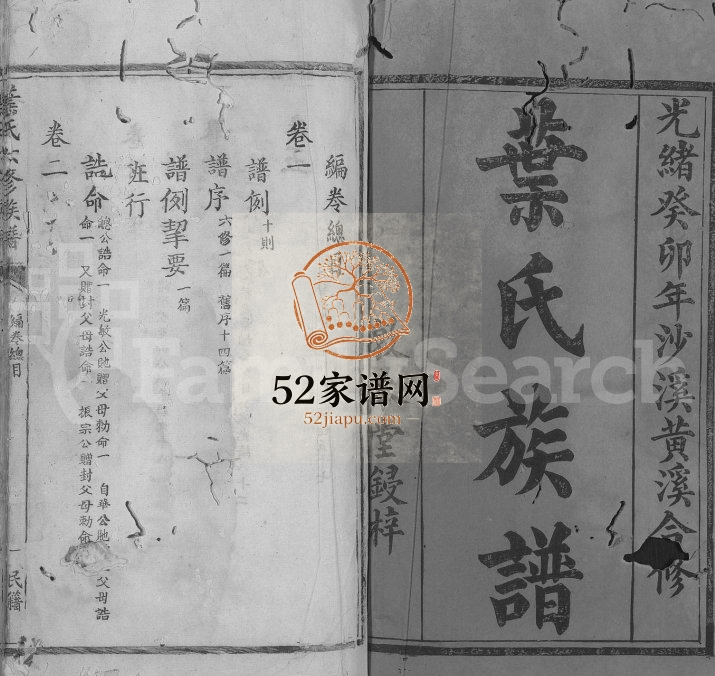 光緒癸卯年沙溪黃溪合修
葉氏族譜
堂鋟梓
編卷總
卷一
譜例 十則
譜序 六修一篇 舊序十四篇
譜例挈要 一篇
班行
誥命
總公誥命一 光敏公貤贈父母勅命一 自華公貤 父母誥
命一 又贈封父母誥命 振宗公贈封父母勅命
卷二
葉氏六修族譜
編卷總目
一
民籍
FamilySearch
52家谱网
52jiapu.com